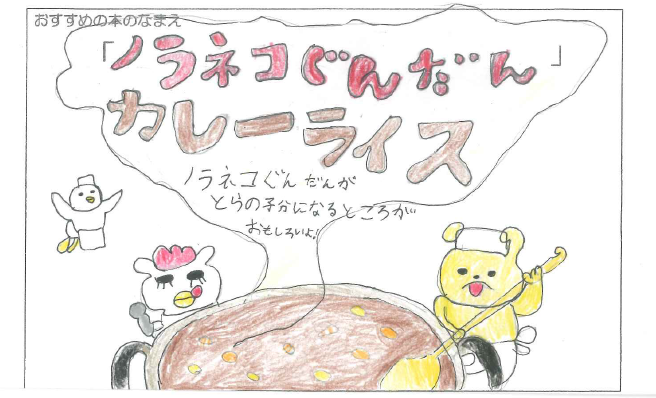 おすすめの本のなまえ
「ノラネコぐんだん」
カレーライス
ノラネコぐんだんが
とらの子分になるところが
おもしろいよ!